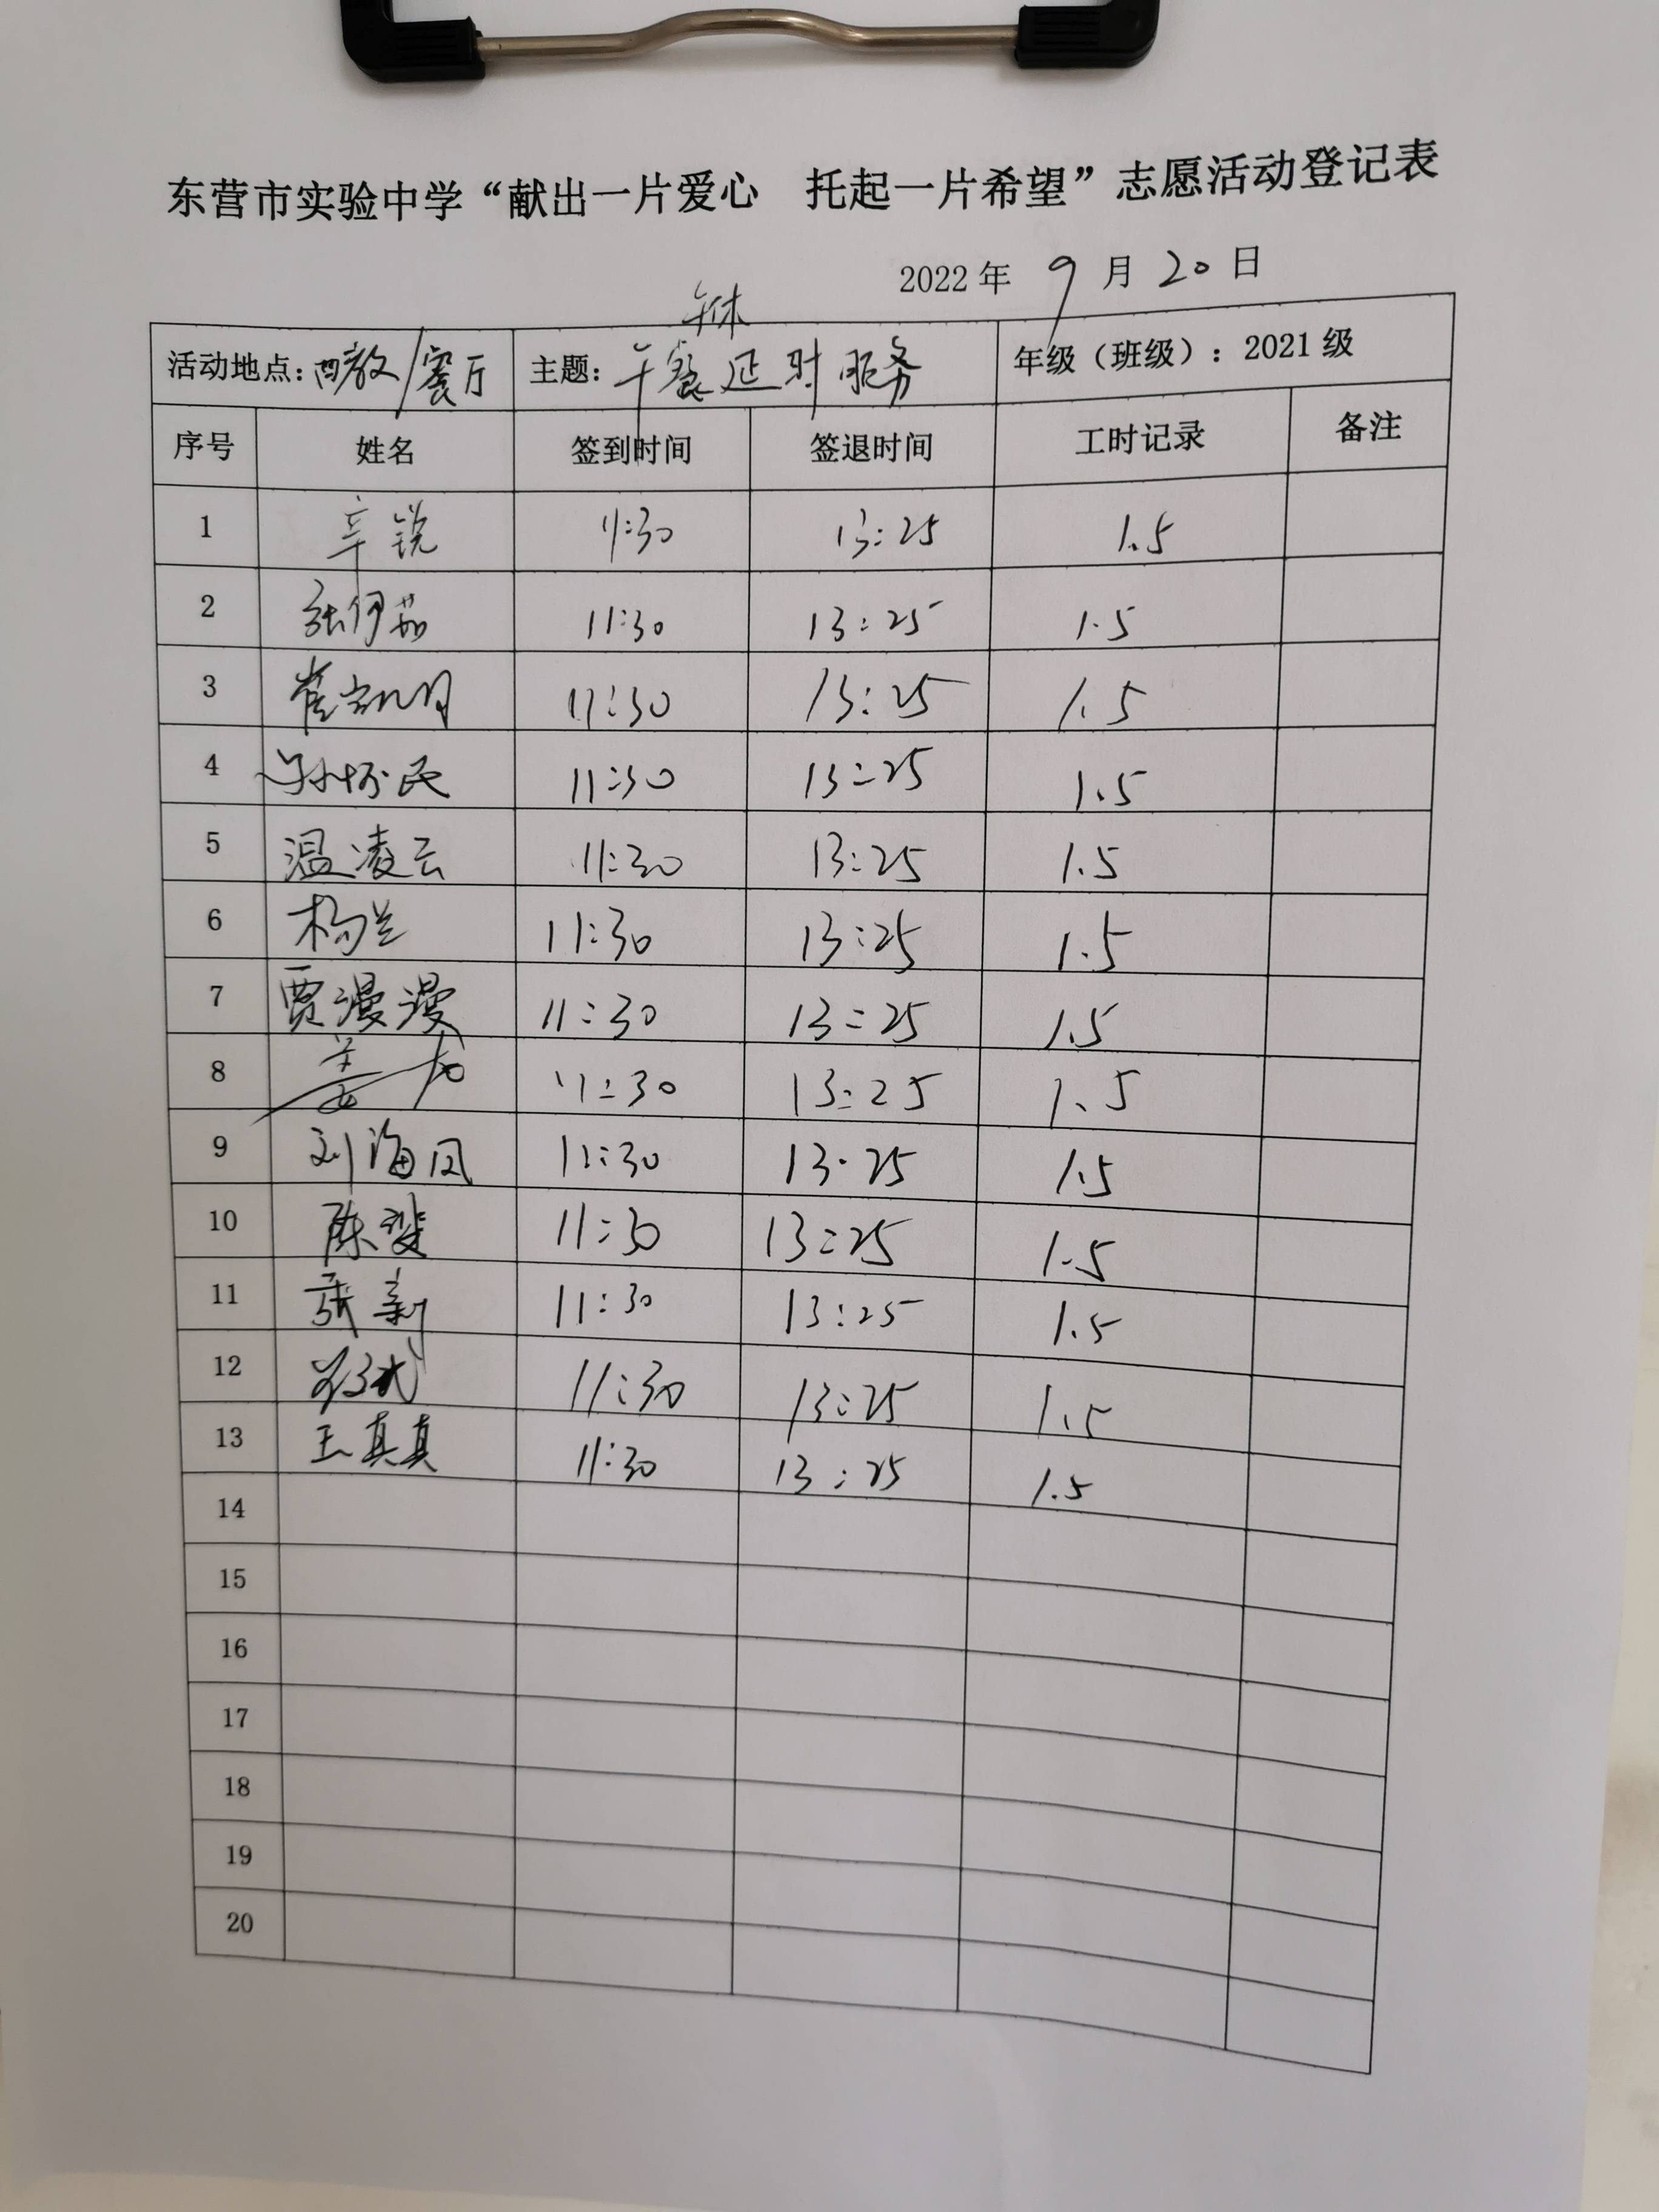 东营市实验中学“献出一片爱心 托起一片希望”志愿活动登记表
2022年 9 月 20 日
午休
活动地点：西教/餐厅 主题：午餐延时服务 年级（班级）：2021级
序号 姓名 签到时间 签退时间 工时记录 备注
1 辛锐 11:30 13:25 1.5
2 张伊茹 11:30 13:25 1.5
3 崔 11:30 13:25 1.5
4 孙怀民 11:30 13:25 1.5
5 温凌云 11:30 13:25 1.5
6 杨兰 11:30 13:25 1.5
7 贾漫漫 11:30 13:25 1.5
8 姜 11:30 13:25 1.5
9 刘海凤 11:30 13:25 1.5
10 陈斐 11:30 13:25 1.5
11 张新 11:30 13:25 1.5
12 11:30 13:25 1.5
13 王真真 11:30 13:25 1.5
14
15
16
17
18
19
20